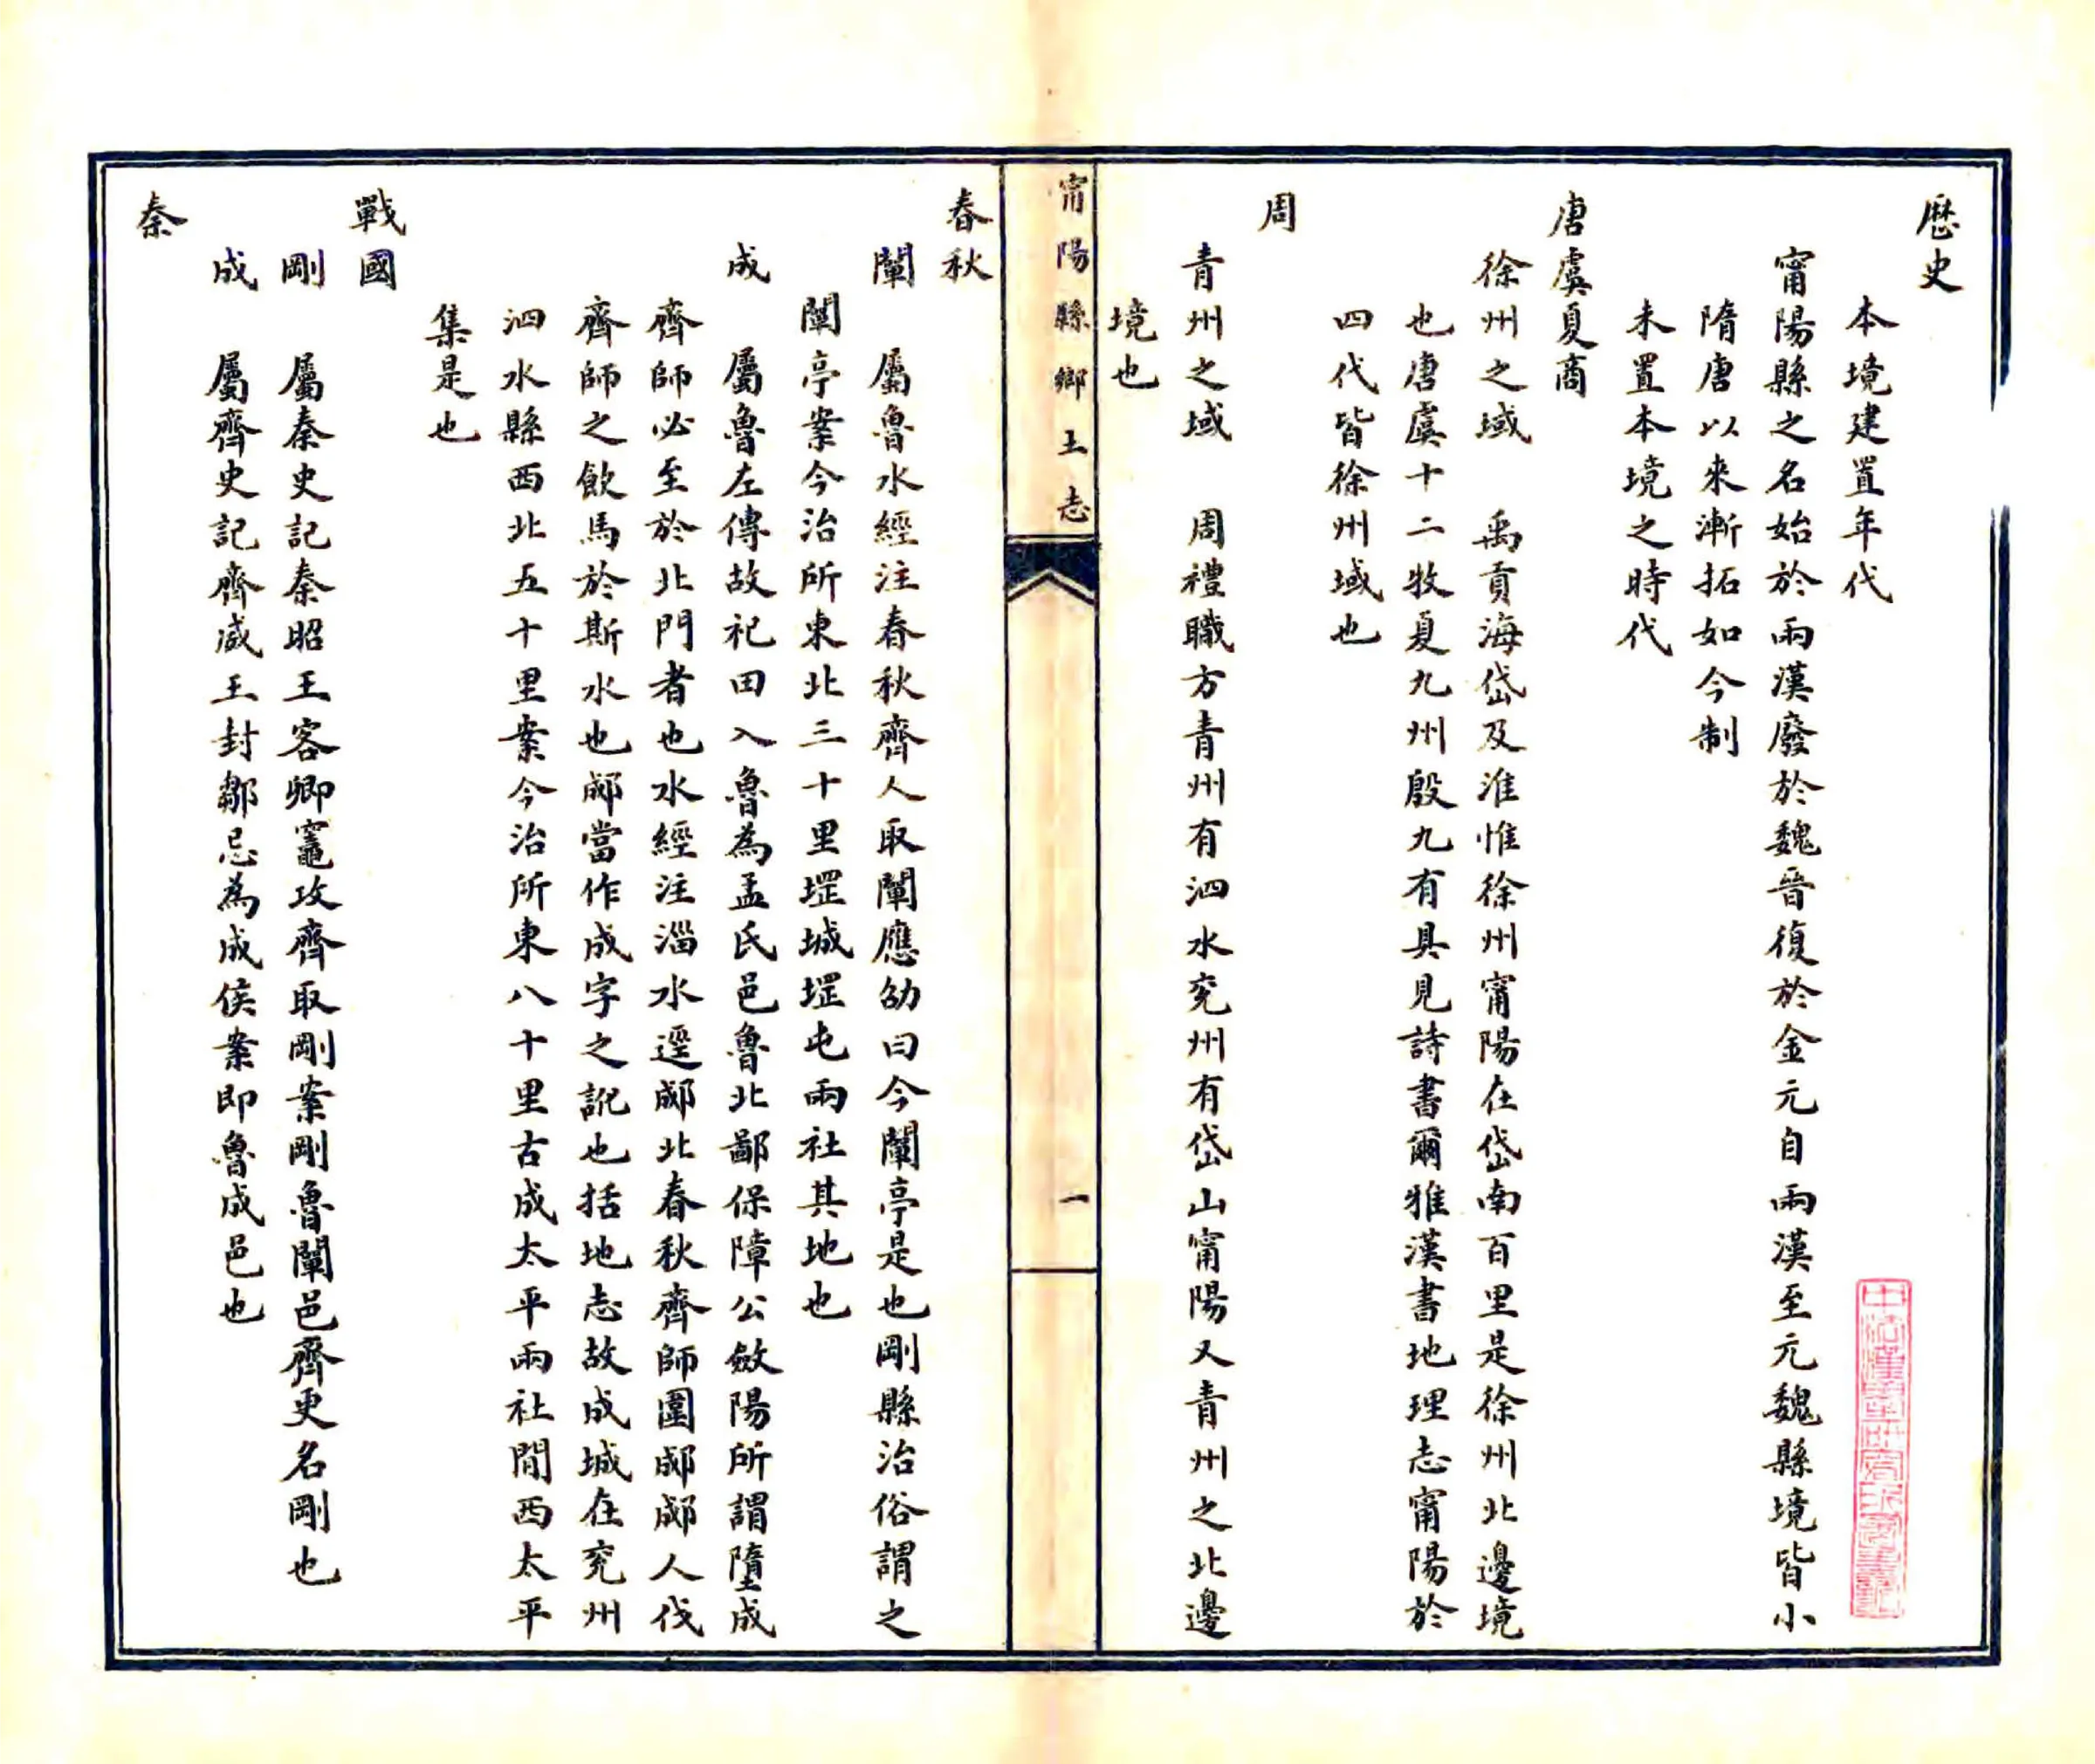 歷史
本境建置年代
甯陽縣之名始於兩漢廢於魏晉復於金元自兩漢至元魏縣境皆小
隋唐以來漸拓如今制
未置本境之時代
唐虞夏商
徐州之域　禹貢海岱及淮惟徐州甯陽在岱南百里是徐州北邊境
也唐虞十二牧夏九州殷九有具見詩書爾雅漢書地理志甯陽於
四代皆徐州域也
周
青州之域　周禮職方青州有泗水兗州有岱山甯陽又青州之北邊
境也
甯陽縣鄉土志
一
春秋
闡　屬魯水經注春秋齊人取闡應劭曰今闡亭是也剛縣治俗謂之
闡亭案今治所東北三十里堽城堽屯兩社其地也
成　屬魯左傳故祀田入魯為孟氏邑魯北鄙保障公斂陽所謂墮成
齊師必至於北門者也水經注淄水逕郕北春秋齊師圍郕郕人伐
齊師之飲馬於斯水也郕當作成字之訛也括地志故成城在兗州
泗水縣西北五十里案今治所東八十里古成太平兩社間西太平
集是也
戰國
剛　屬秦史記秦昭王客卿竈攻齊取剛案剛魯闡邑齊更名剛也
成　屬齊史記齊威王封鄒忌為成侯案即魯成邑也
秦